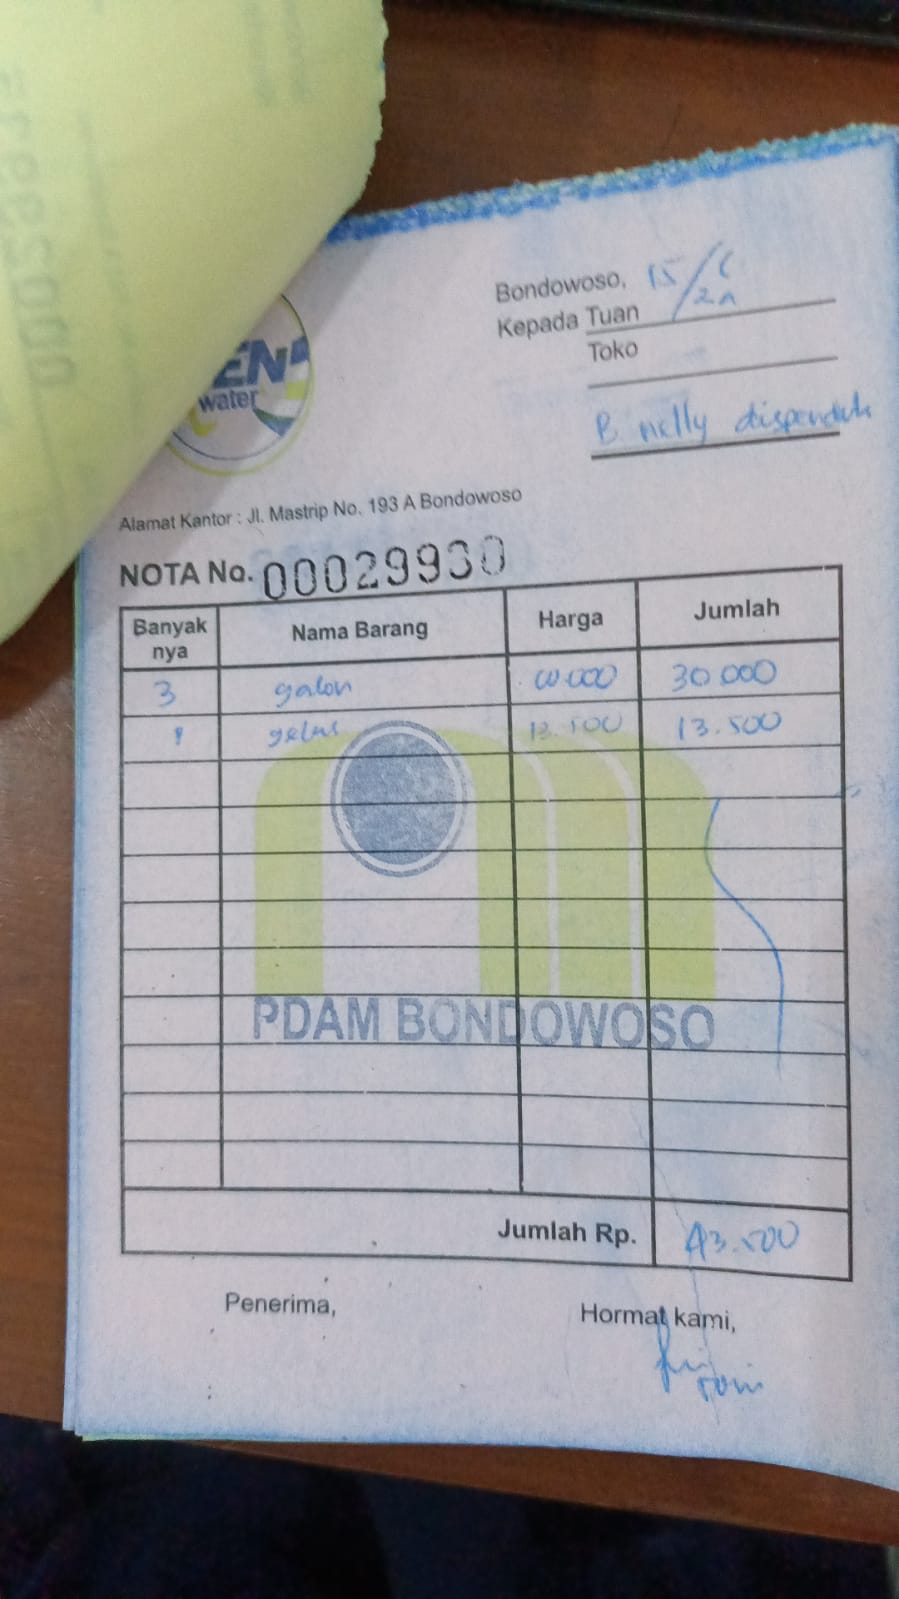 EN
water
Bondowoso, 15/
Kepada Tuan
Toko
B. nelly dispenduk
Alamat Kantor : Jl. Mastrip No. 193 A Bondowoso
NOTA No. 00029930
Banyak nya Nama Barang Harga Jumlah
3 galon 10.000 30.000
1 gelas 13.500 13.500
PDAM BONDOWOSO
Jumlah Rp. 43.500
Penerima, Hormat kami,